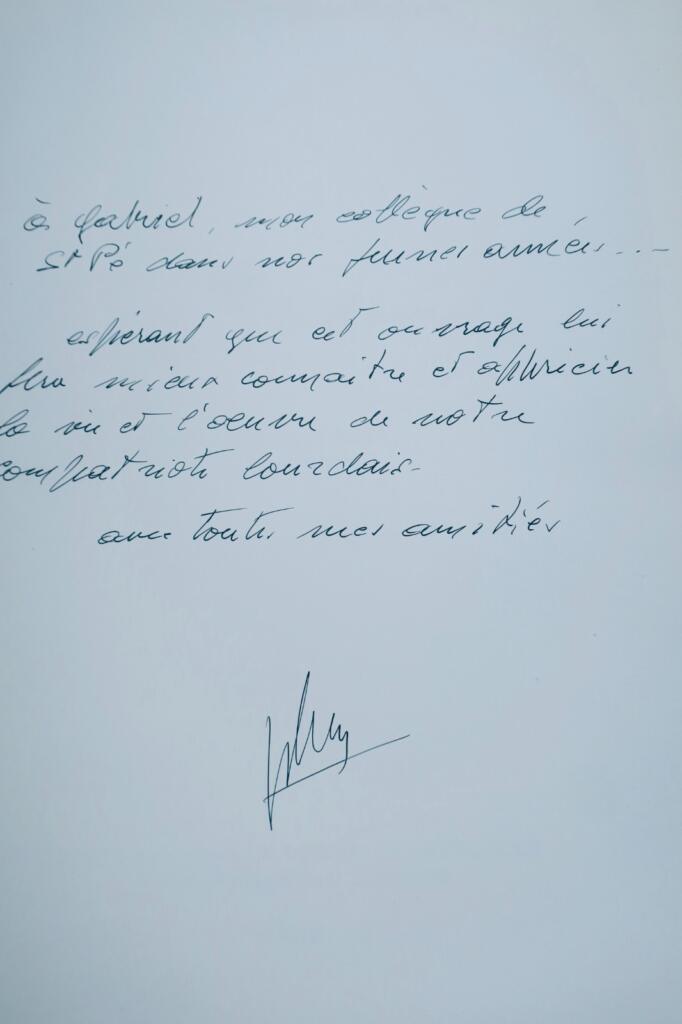 à Gabriel, mon collègue de
St Pé dans nos jeunes années...
espérant que cet ouvrage lui
fera mieux connaitre et apprécier
la vie et l'oeuvre de notre
compatriote lourdais.
avec toutes mes amitiés